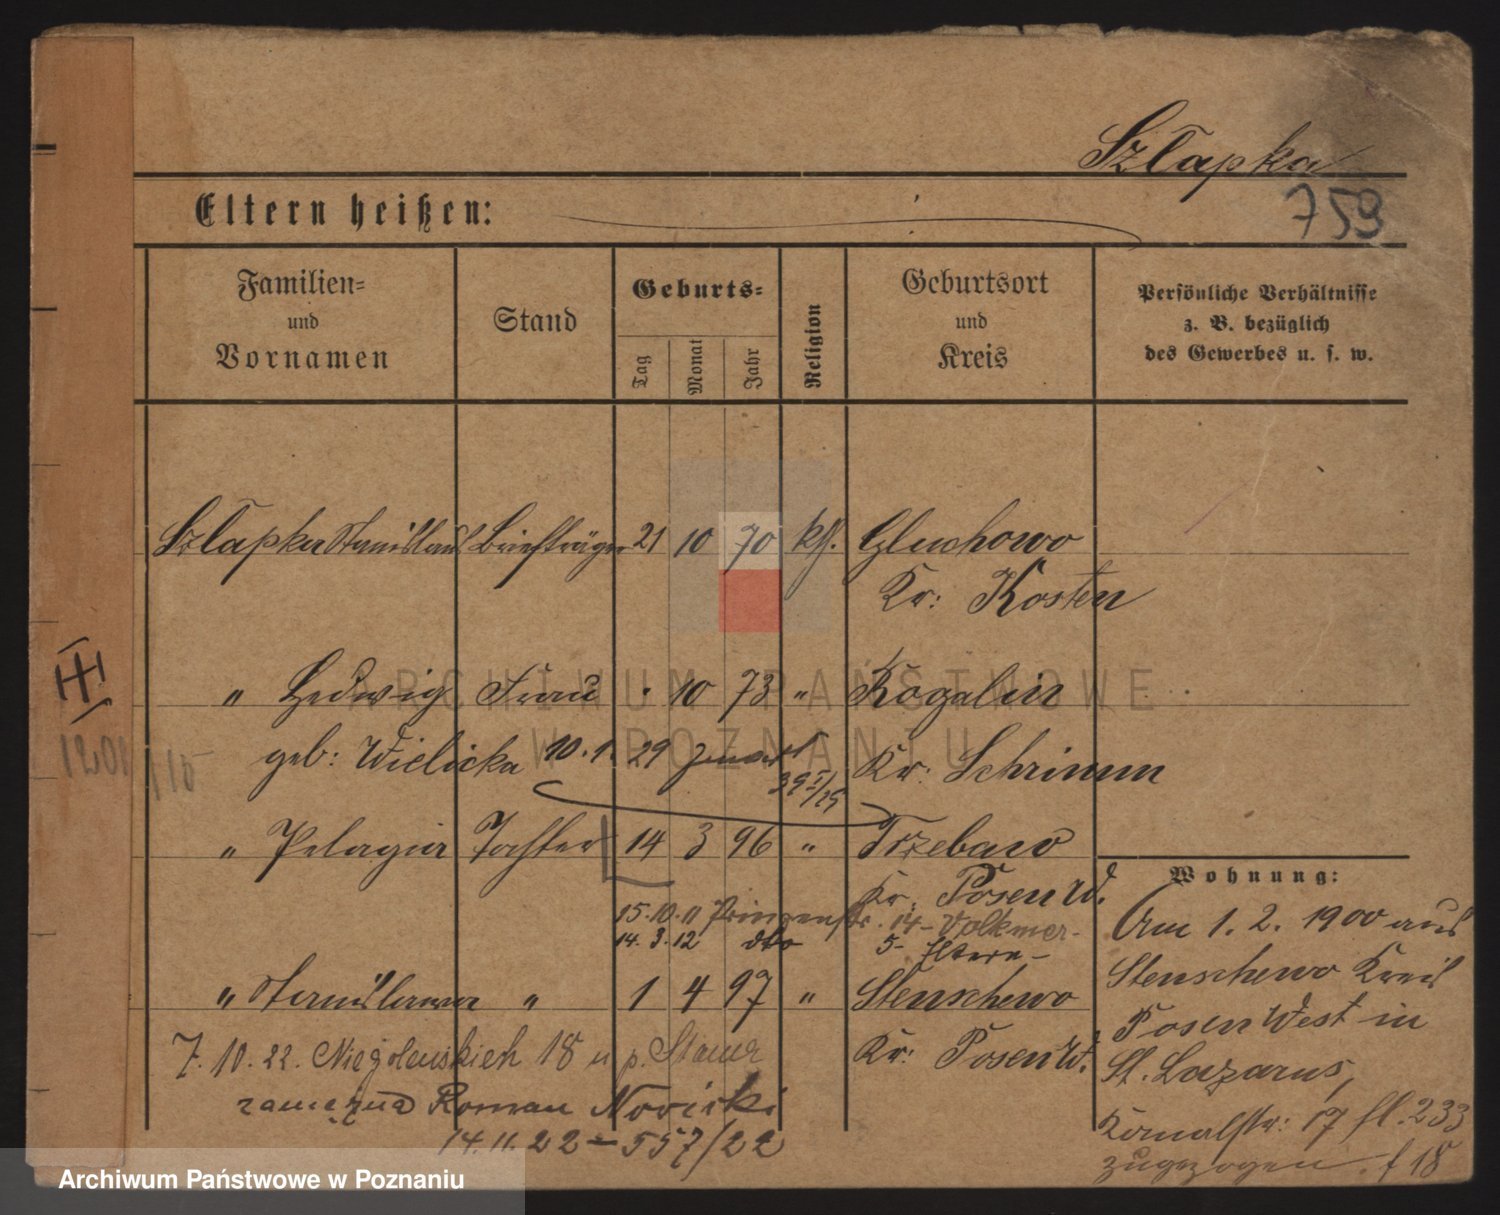 Szlapka
759
Eltern heißen:
Familien=
und
Vornamen
Stand
Geburts=
Tag
Monat
Jahr
Religion
Geburtsort
und
Kreis
Persönliche Verhältnisse
z. B. bezüglich
des Gewerbes u. s. w.
Szlapka Stanislaus Briefträger 21 10 70 kth. Gluchowo
Kr: Kosten
" Hedwig Frau 10 73 " Rogalin
geb: Wielicka 10.1. 29 Januar Kr: Schrimm
" Pelagia Tochter 14 3 96 " Trzebaw
Kr. Posen W.
15.10.11 Prinzenstr. 14 - Volkmer-
14.3.12 dto 5- Eltern -
" Stanislawa " 1 4 97 " Stenschewo
Kr: Posen W.
7.10.22. Niegolewskich 18 u p. Stauer
zamężna Roman Nowicki
14.11.22 = 557/22
Wohnung:
Am 1. 2. 1900 aus
Stenschewo Kreis
Posen West in
St. Lazarus,
17 fl. 233
zugezogen. f 18
III
1201
115
ARCHIWUM PAŃSTWOWE
W POZNANIU
Archiwum Państwowe w Poznaniu